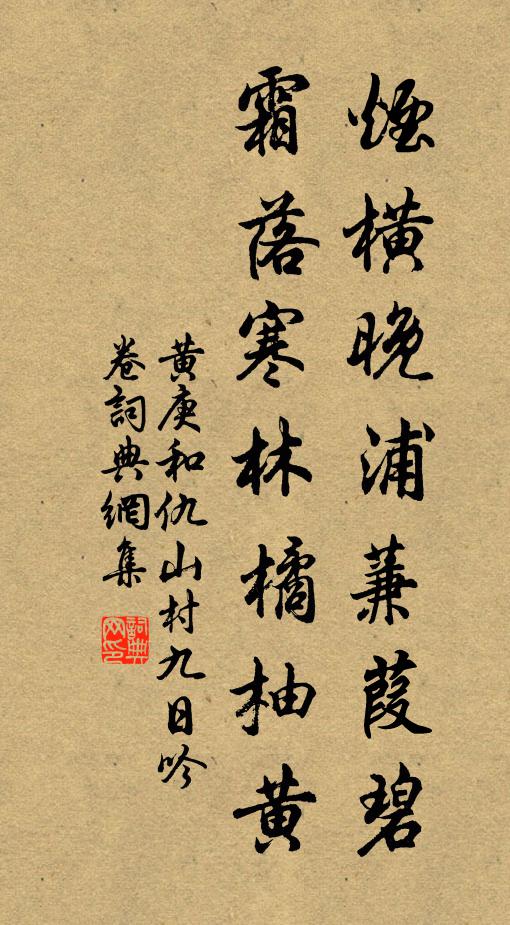 煙橫晚浦蒹葭碧
霜落寒林橘柚黃
黃庚和仇山村九日吟
卷詞典網集
詞典
网印